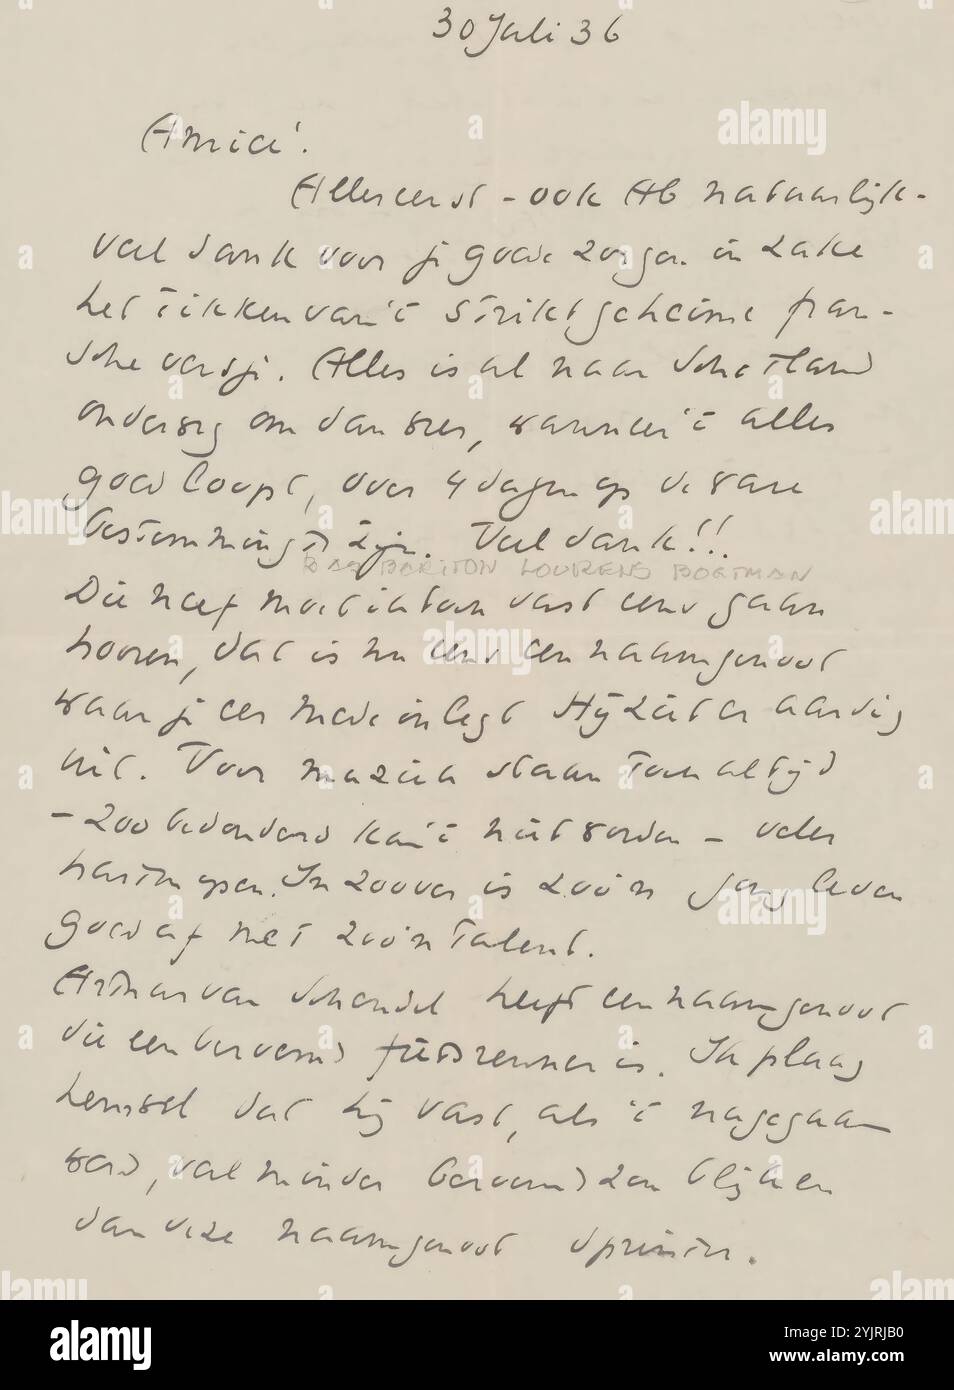 30 Juli 36
Amice!
Allereerst - ook Ab natuurlijk -
veel dank voor je goede zorgen in zake
het tikken van 't strikt geheime fran-
sche versje. Alles is al naar Schotland
onderweg om dan weer, wanneer 't alles
goed loopt, over 4 dagen op de ware
bestemming te zijn. Veel dank!!
BAS BARITON LOURENS BOGTMAN
Die neef moet ik toch vast eens gaan
hooren, dat is nu eens een naamgenoot
waar je eer mede inlegt. Hij ziet er aardig
uit. Voor muziek staan toch altijd
- zoo bedonderd kan 't niet worden - veler
harten open. In zoover is zoo'n jong leven
goed af met zoo'n talent.
Arthur van Schendel heeft een naamgenoot
die een beroemd fietsrenner is. Ik plaag
hem wel dat hij vast, als 't nagegaan
werd, veel minder beroemd zou blijken
dan deze naamgenoot sprinter.
alamy
Image ID: 2YJRJB0
www.alamy.com